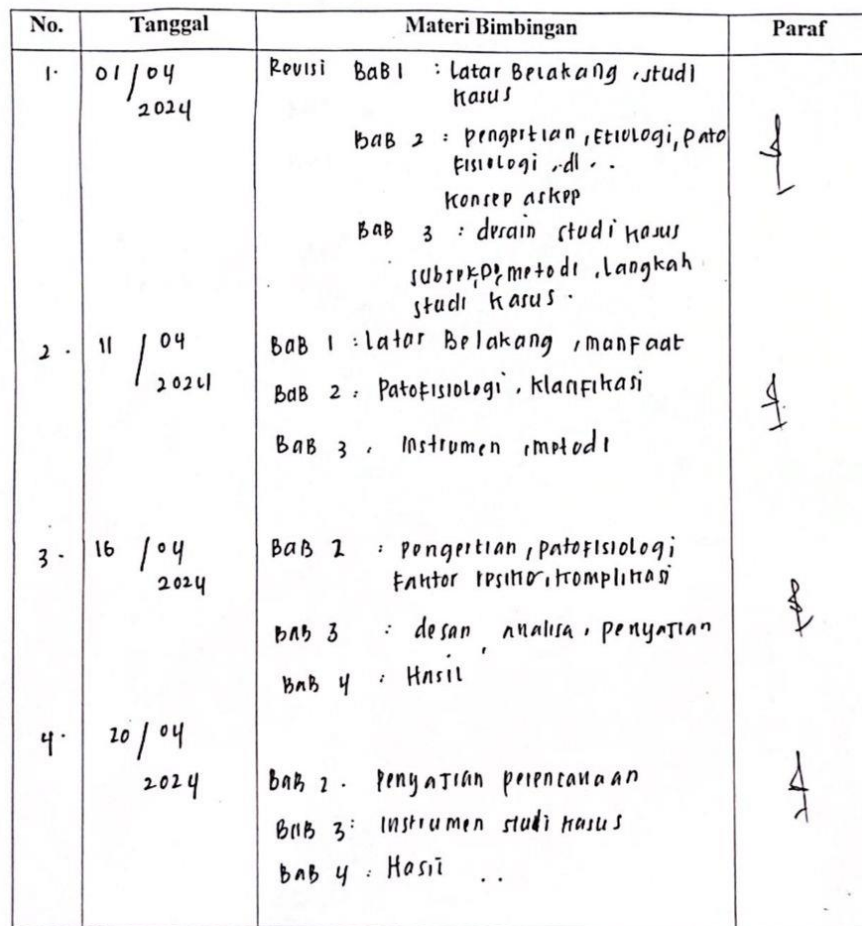 No. Tanggal Materi Bimbingan Paraf
1. 01/04 Revisi BaB 1 : Latar Belakang, studi
2024 kasus
BaB 2 : pengertian, Etiologi, pato
fisiologi, dl . .
konsep askep
BaB 3 : desain studi kasus
metodi, langkah
studi kasus.
2. 11/04 BaB 1 : Latar Belakang, manfaat
2024 BaB 2 : Patofisiologi, klasifikasi
BaB 3 . Instrumen, metodi
3. 16/04 BaB 2 : pengertian, patofisiologi
2024 Faktor resiko, komplikasi
BaB 3 : desan, analisa, penyajian
BaB 4 : Hasil
4. 20/04
2024 BaB 2 . penyajian perencanaan
BaB 3 : Instrumen studi kasus
BaB 4 : Hasil . .